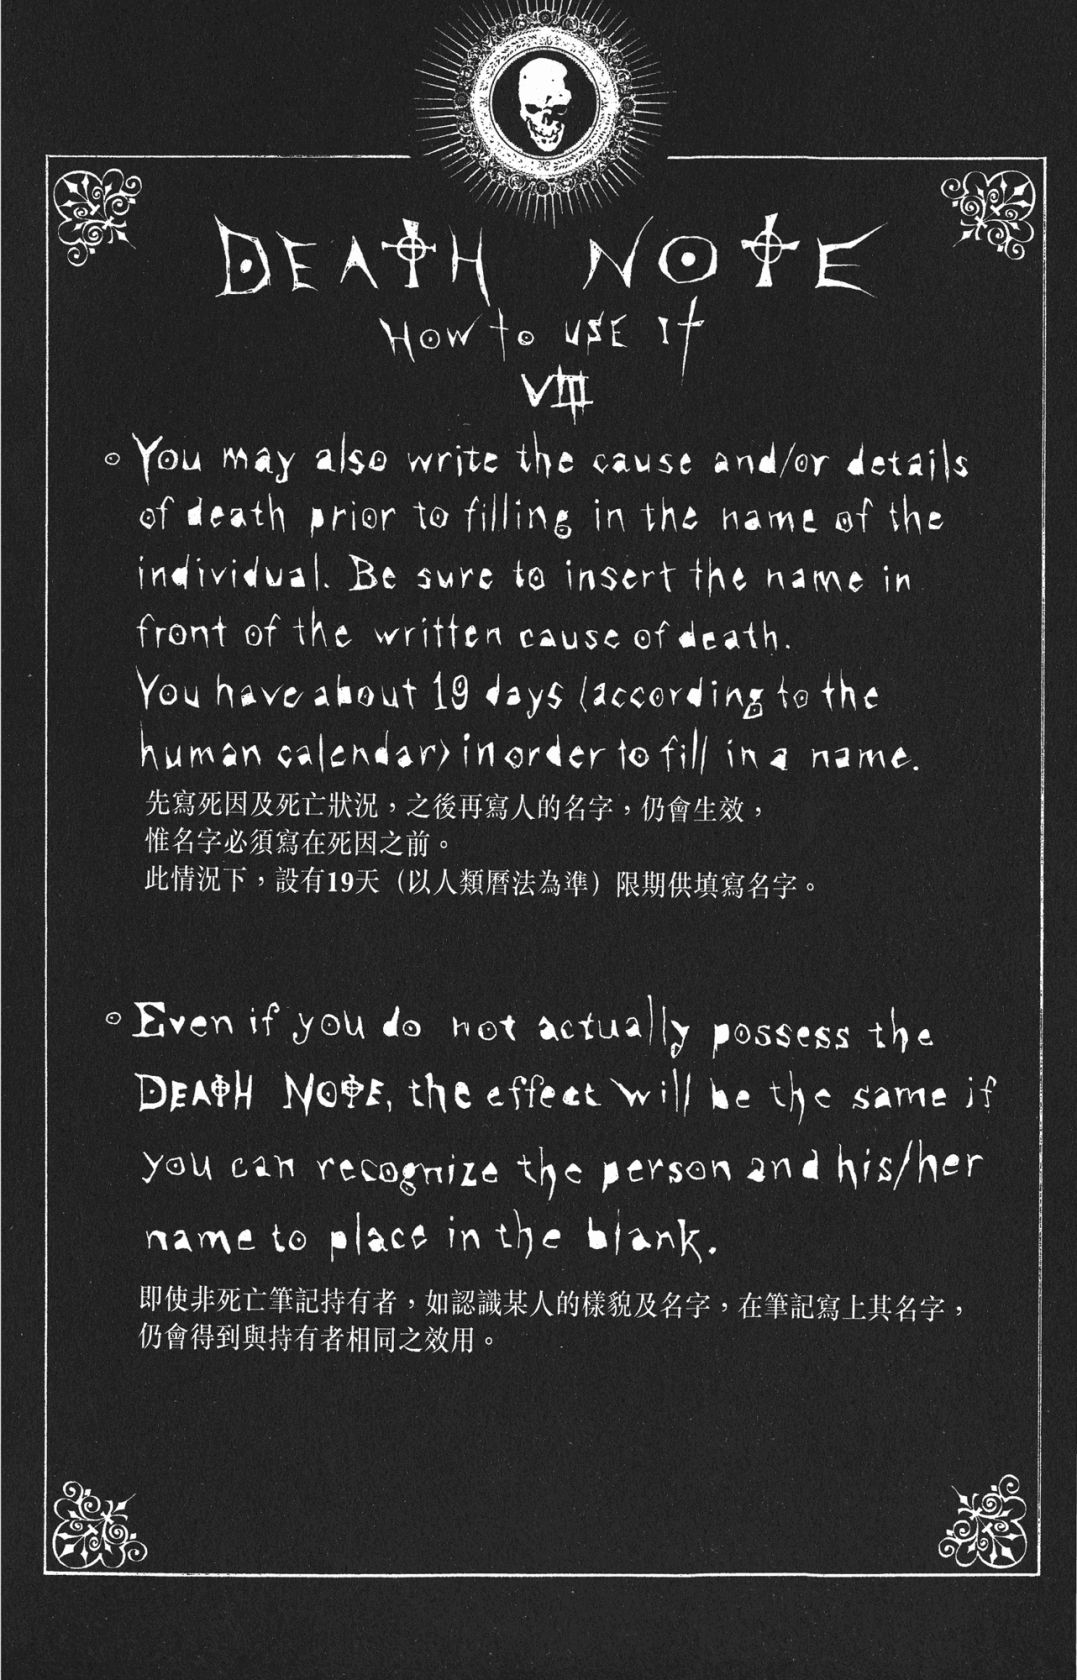 DEATH NOTE
HOW to USE It
VIII
You may also write the cause and/or details
of death prior to filling in the name of the
individual. Be sure to insert the name in
front of the written cause of death.
You have about 19 days (according to the
human calendar) in order to fill in a name.
先寫死因及死亡狀況，之後再寫人的名字，仍會生效，
惟名字必須寫在死因之前。
此情況下，設有19天（以人類曆法為準）限期供填寫名字。
Even if you do not actually possess the
DEATH NOTE, the effect will be the same if
you can recognize the person and his/her
name to place in the blank.
即使非死亡筆記持有者，如認識某人的樣貌及名字，在筆記寫上其名字，
仍會得到與持有者相同之效用。